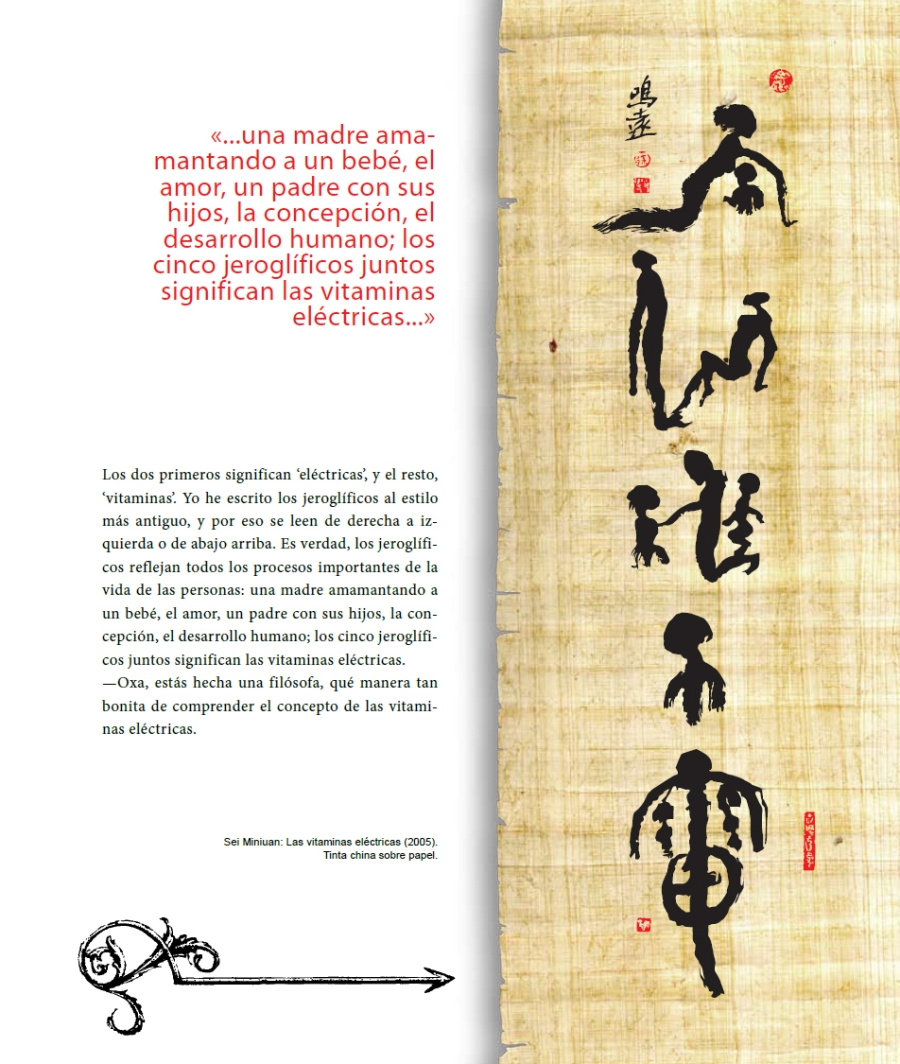 «...una madre ama-
mantando a un bebé, el
amor, un padre con sus
hijos, la concepción, el
desarrollo humano; los
cinco jeroglíficos juntos
significan las vitaminas
eléctricas...»
Los dos primeros significan ‘eléctricas’, y el resto,
‘vitaminas’. Yo he escrito los jeroglíficos al estilo
más antiguo, y por eso se leen de derecha a iz-
quierda o de abajo arriba. Es verdad, los jeroglífi-
cos reflejan todos los procesos importantes de la
vida de las personas: una madre amamantando a
un bebé, el amor, un padre con sus hijos, la con-
cepción, el desarrollo humano; los cinco jeroglífi-
cos juntos significan las vitaminas eléctricas.
—Oxa, estás hecha una filósofa, qué manera tan
bonita de comprender el concepto de las vitami-
nas eléctricas.
Sei Miniuan: Las vitaminas eléctricas (2005).
Tinta china sobre papel.